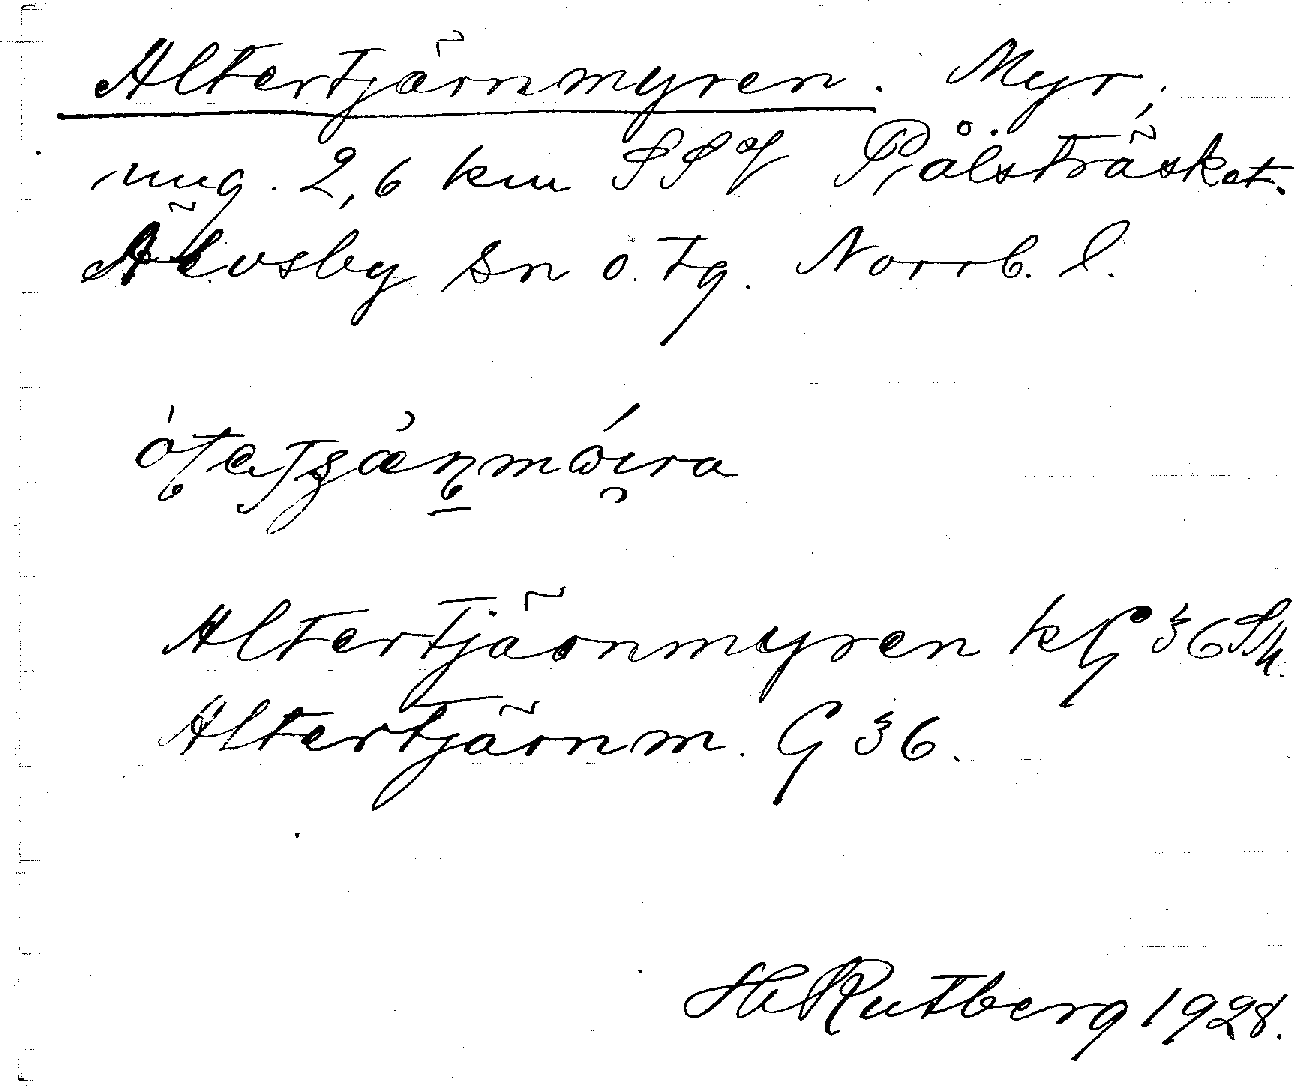 Altertjärnmyren. Myr,
ung. 2,6 km SSV Pålsträsket.
Älvsby sn o. tg. Norrb. l.
Altertjärnmyren kG 36 Sk.
Altertjärnm. G 36.
H Rutberg 1928.